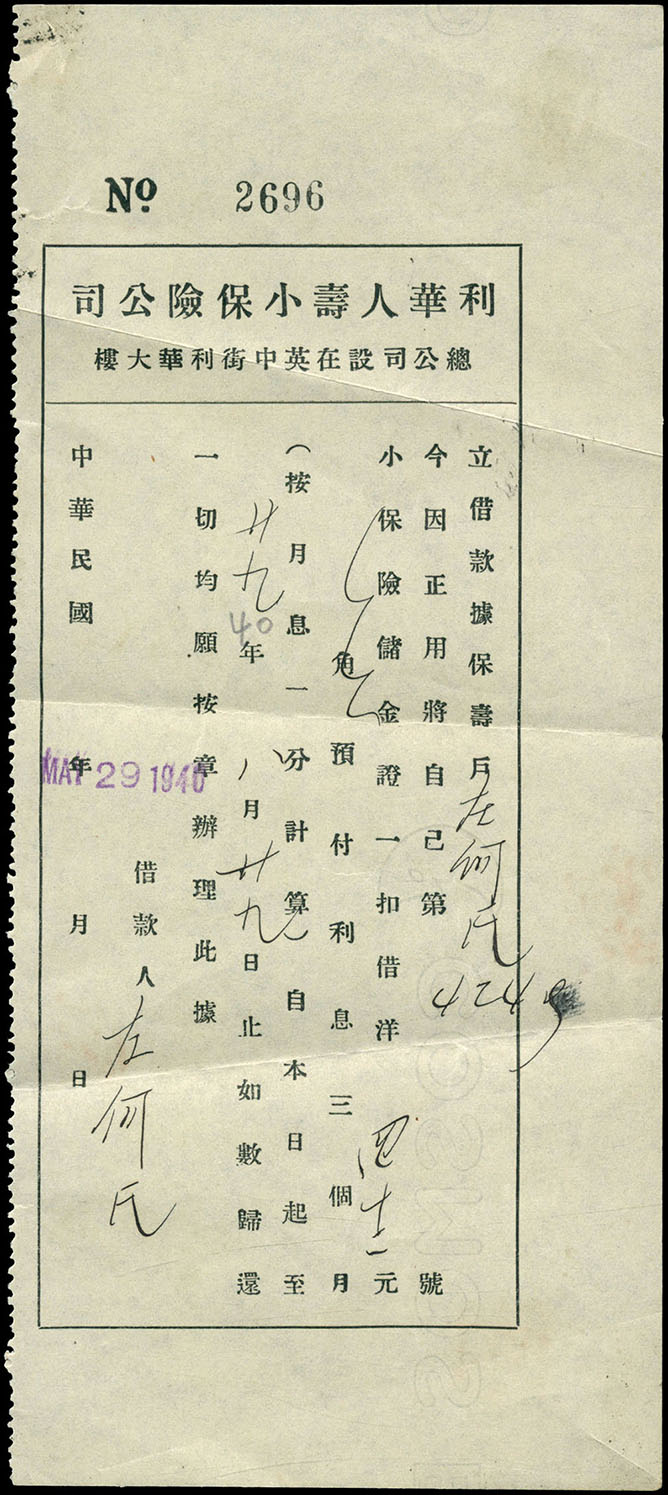 Nº 2696
利華人壽小保險公司
總公司設在英中街利華大樓
立借款據保壽戶左何氏
今因正用將自己第4249號
小保險儲金證一扣借洋四十一元
角預付利息三個月
（按月息一分計算）自本日起至
廿九40年八月廿九日止如數歸還
一切均願按章辦理此據
借款人左何氏
中華民國年月日
MAY 29 1940